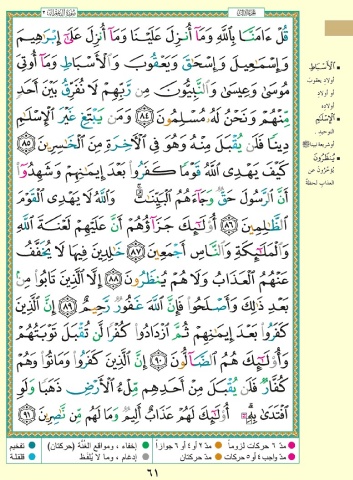 سُورَةُ آلِ عِمْرَان ٣
الجُزْءُ الثَّالِثُ
قُلْ ءَامَنَّا بِٱللَّهِ وَمَآ أُنزِلَ عَلَيْنَا وَمَآ أُنزِلَ عَلَىٰٓ إِبْرَٰهِيمَ
وَإِسْمَٰعِيلَ وَإِسْحَٰقَ وَيَعْقُوبَ وَٱلْأَسْبَاطِ وَمَآ أُوتِىَ
مُوسَىٰ وَعِيسَىٰ وَٱلنَّبِيُّونَ مِن رَّبِّهِمْ لَا نُفَرِّقُ بَيْنَ أَحَدٍ
مِّنْهُمْ وَنَحْنُ لَهُۥ مُسْلِمُونَ ٨٤ وَمَن يَبْتَغِ غَيْرَ ٱلْإِسْلَٰمِ
دِينًا فَلَن يُقْبَلَ مِنْهُ وَهُوَ فِى ٱلْأَخِرَةِ مِنَ ٱلْخَٰسِرِينَ ٨٥
كَيْفَ يَهْدِى ٱللَّهُ قَوْمًا كَفَرُوا۟ بَعْدَ إِيمَٰنِهِمْ وَشَهِدُوٓا۟
أَنَّ ٱلرَّسُولَ حَقٌّ وَجَآءَهُمُ ٱلْبَيِّنَٰتُ وَٱللَّهُ لَا يَهْدِى ٱلْقَوْمَ
ٱلظَّٰلِمِينَ ٨٦ أُو۟لَٰٓئِكَ جَزَآؤُهُمْ أَنَّ عَلَيْهِمْ لَعْنَةَ ٱللَّهِ
وَٱلْمَلَٰٓئِكَةِ وَٱلنَّاسِ أَجْمَعِينَ ٨٧ خَٰلِدِينَ فِيهَا لَا يُخَفَّفُ
عَنْهُمُ ٱلْعَذَابُ وَلَا هُمْ يُنظَرُونَ ٨٨ إِلَّا ٱلَّذِينَ تَابُوا۟ مِنۢ
بَعْدِ ذَٰلِكَ وَأَصْلَحُوا۟ فَإِنَّ ٱللَّهَ غَفُورٌ رَّحِيمٌ ٨٩ إِنَّ ٱلَّذِينَ
كَفَرُوا۟ بَعْدَ إِيمَٰنِهِمْ ثُمَّ ٱزْدَادُوا۟ كُفْرًا لَّن تُقْبَلَ تَوْبَتُهُمْ
وَأُو۟لَٰٓئِكَ هُمُ ٱلضَّآلُّونَ ٩٠ إِنَّ ٱلَّذِينَ كَفَرُوا۟ وَمَاتُوا۟ وَهُمْ
كُفَّارٌ فَلَن يُقْبَلَ مِنْ أَحَدِهِم مِّلْءُ ٱلْأَرْضِ ذَهَبًا وَلَوِ
ٱفْتَدَىٰ بِهِۦٓ أُو۟لَٰٓئِكَ لَهُمْ عَذَابٌ أَلِيمٌ وَمَا لَهُم مِّن نَّٰصِرِينَ ٩١
الْأَسْبَاطِ
أولاد يعقوب
أو أولاد
أولاده
الْإِسْلَامِ
التوحيد
أو شريعة نبينا ﷺ
يُنْظَرُونَ
يُؤخَّرون عن
العذاب لحظة
مدّ ٦ حركات لزوماً مدّ ٢ أو ٤ أو ٦ جوازاً إخفاء، ومواقع الغُنَّة (حركتان) تفخيم
مدّ واجب ٤ أو ٥ حركات مدّ حركتان إدغام، وما لا يُلفَظ قلقلة
٦١